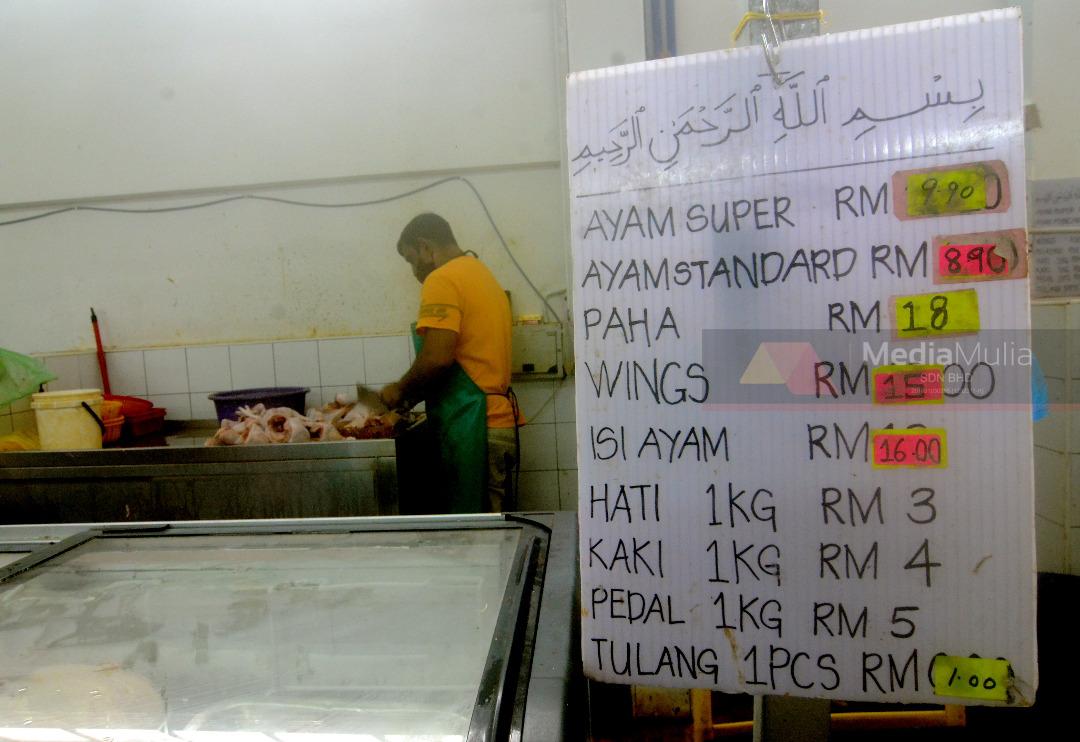 بِسْمِ ٱللَّهِ ٱلرَّحْمَٰنِ ٱلرَّحِيمِ
AYAM SUPER RM 9.90
AYAM STANDARD RM 8.90
PAHA RM 18
WINGS RM 15.00
ISI AYAM RM 16.00
HATI 1KG RM 3
KAKI 1KG RM 4
PEDAL 1KG RM 5
TULANG 1PCS RM 1.00
MediaMulia
SDN BHD